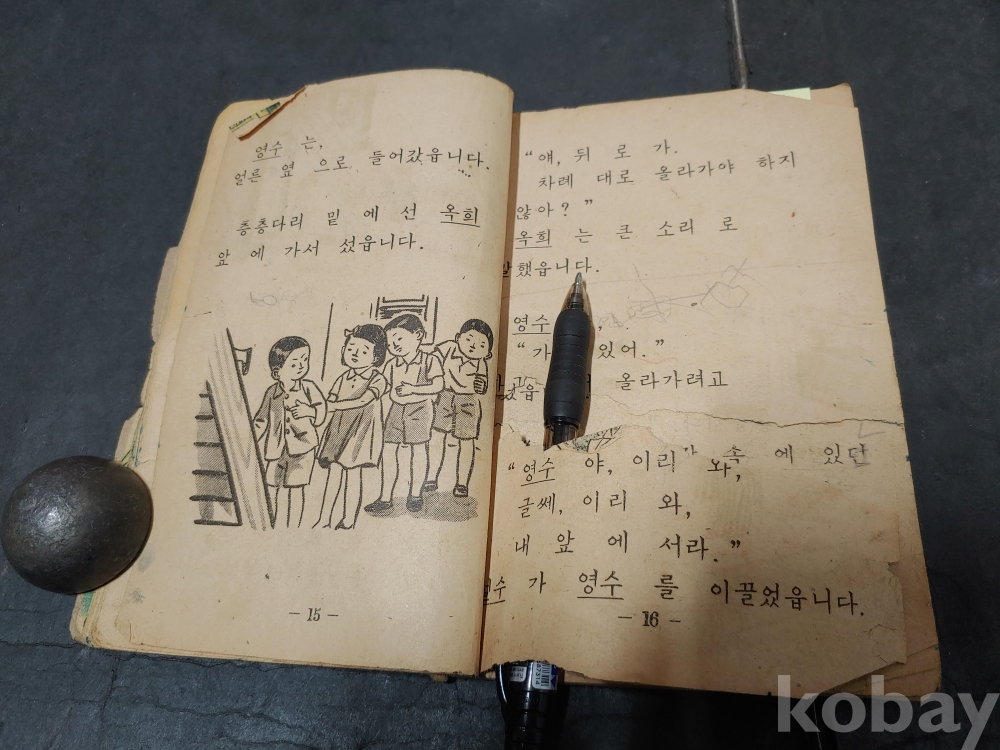 영수 는,
얼른 옆 으로 들어갔읍니다.
층층다리 밑 에 선 옥희
앞 에 가서 섰읍니다.
- 15 -
“얘, 뒤 로 가.
차례 대로 올라가야 하지
않아?”
옥희 는 큰 소리 로
말했읍니다.
영수
“가 있어.”
올라가려고
속 에 있던
“영수 야, 이리 와,
글쎄, 이리 와,
내 앞 에 서라.”
수 가 영수 를 이끌었읍니다.
- 16 -
kobay